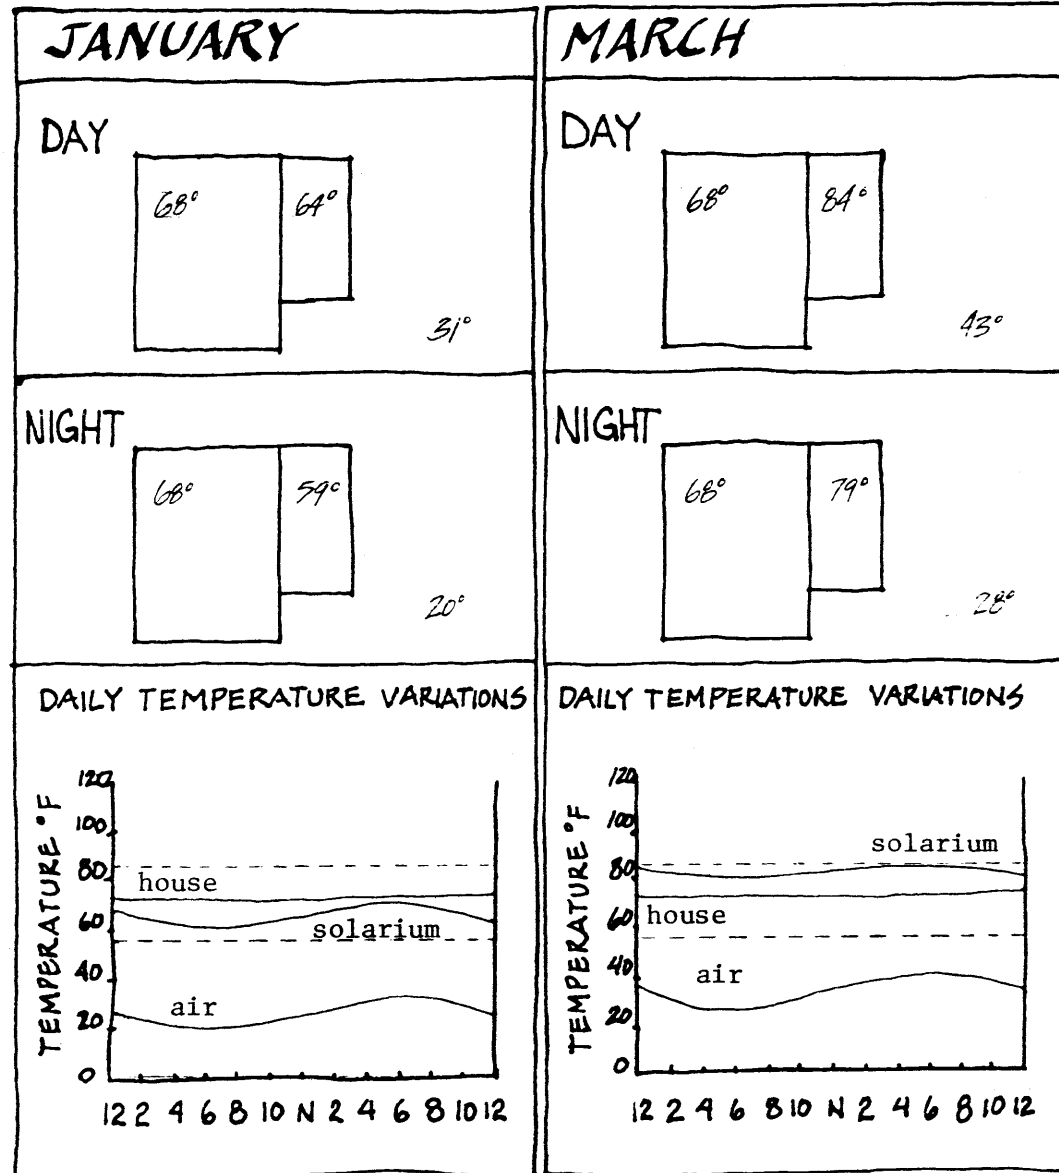 JANUARY
DAY
68°
64°
31°
NIGHT
68°
59°
20°
DAILY TEMPERATURE VARIATIONS
TEMPERATURE °F
120
100
80
60
40
20
0
house
solarium
air
12 2 4 6 8 10 N 2 4 6 8 10 12
MARCH
DAY
68°
84°
43°
NIGHT
68°
79°
28°
DAILY TEMPERATURE VARIATIONS
TEMPERATURE °F
120
100
80
60
40
20
0
solarium
house
air
12 2 4 6 8 10 N 2 4 6 8 10 12